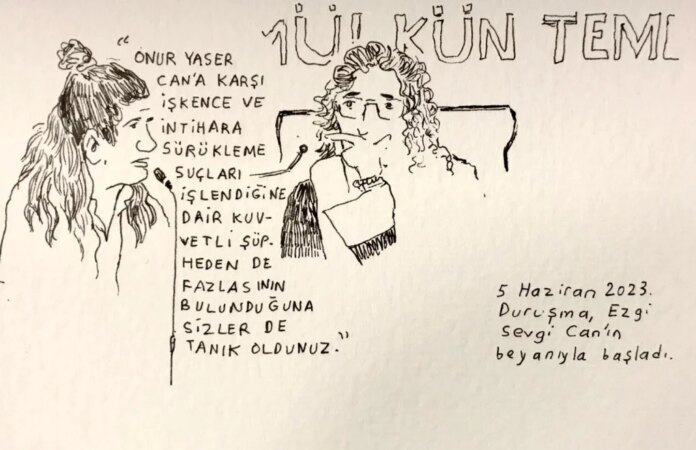 MÜLKÜN TEME
"ONUR YASER
CAN'A KARŞI
İŞKENCE VE
İNTİHARA
SÜRÜKLEME
SUÇLARI
İŞLENDİĞİNE
DAİR KUV-
VETLİ ŞÜP-
HEDEN DE
FAZLASININ
BULUNDUĞUNA
SİZLER DE
TANIK OLDUNUZ."
5 Haziran 2023.
Duruşma, Ezgi
Sevgi Can'ın
beyanıyla başladı.